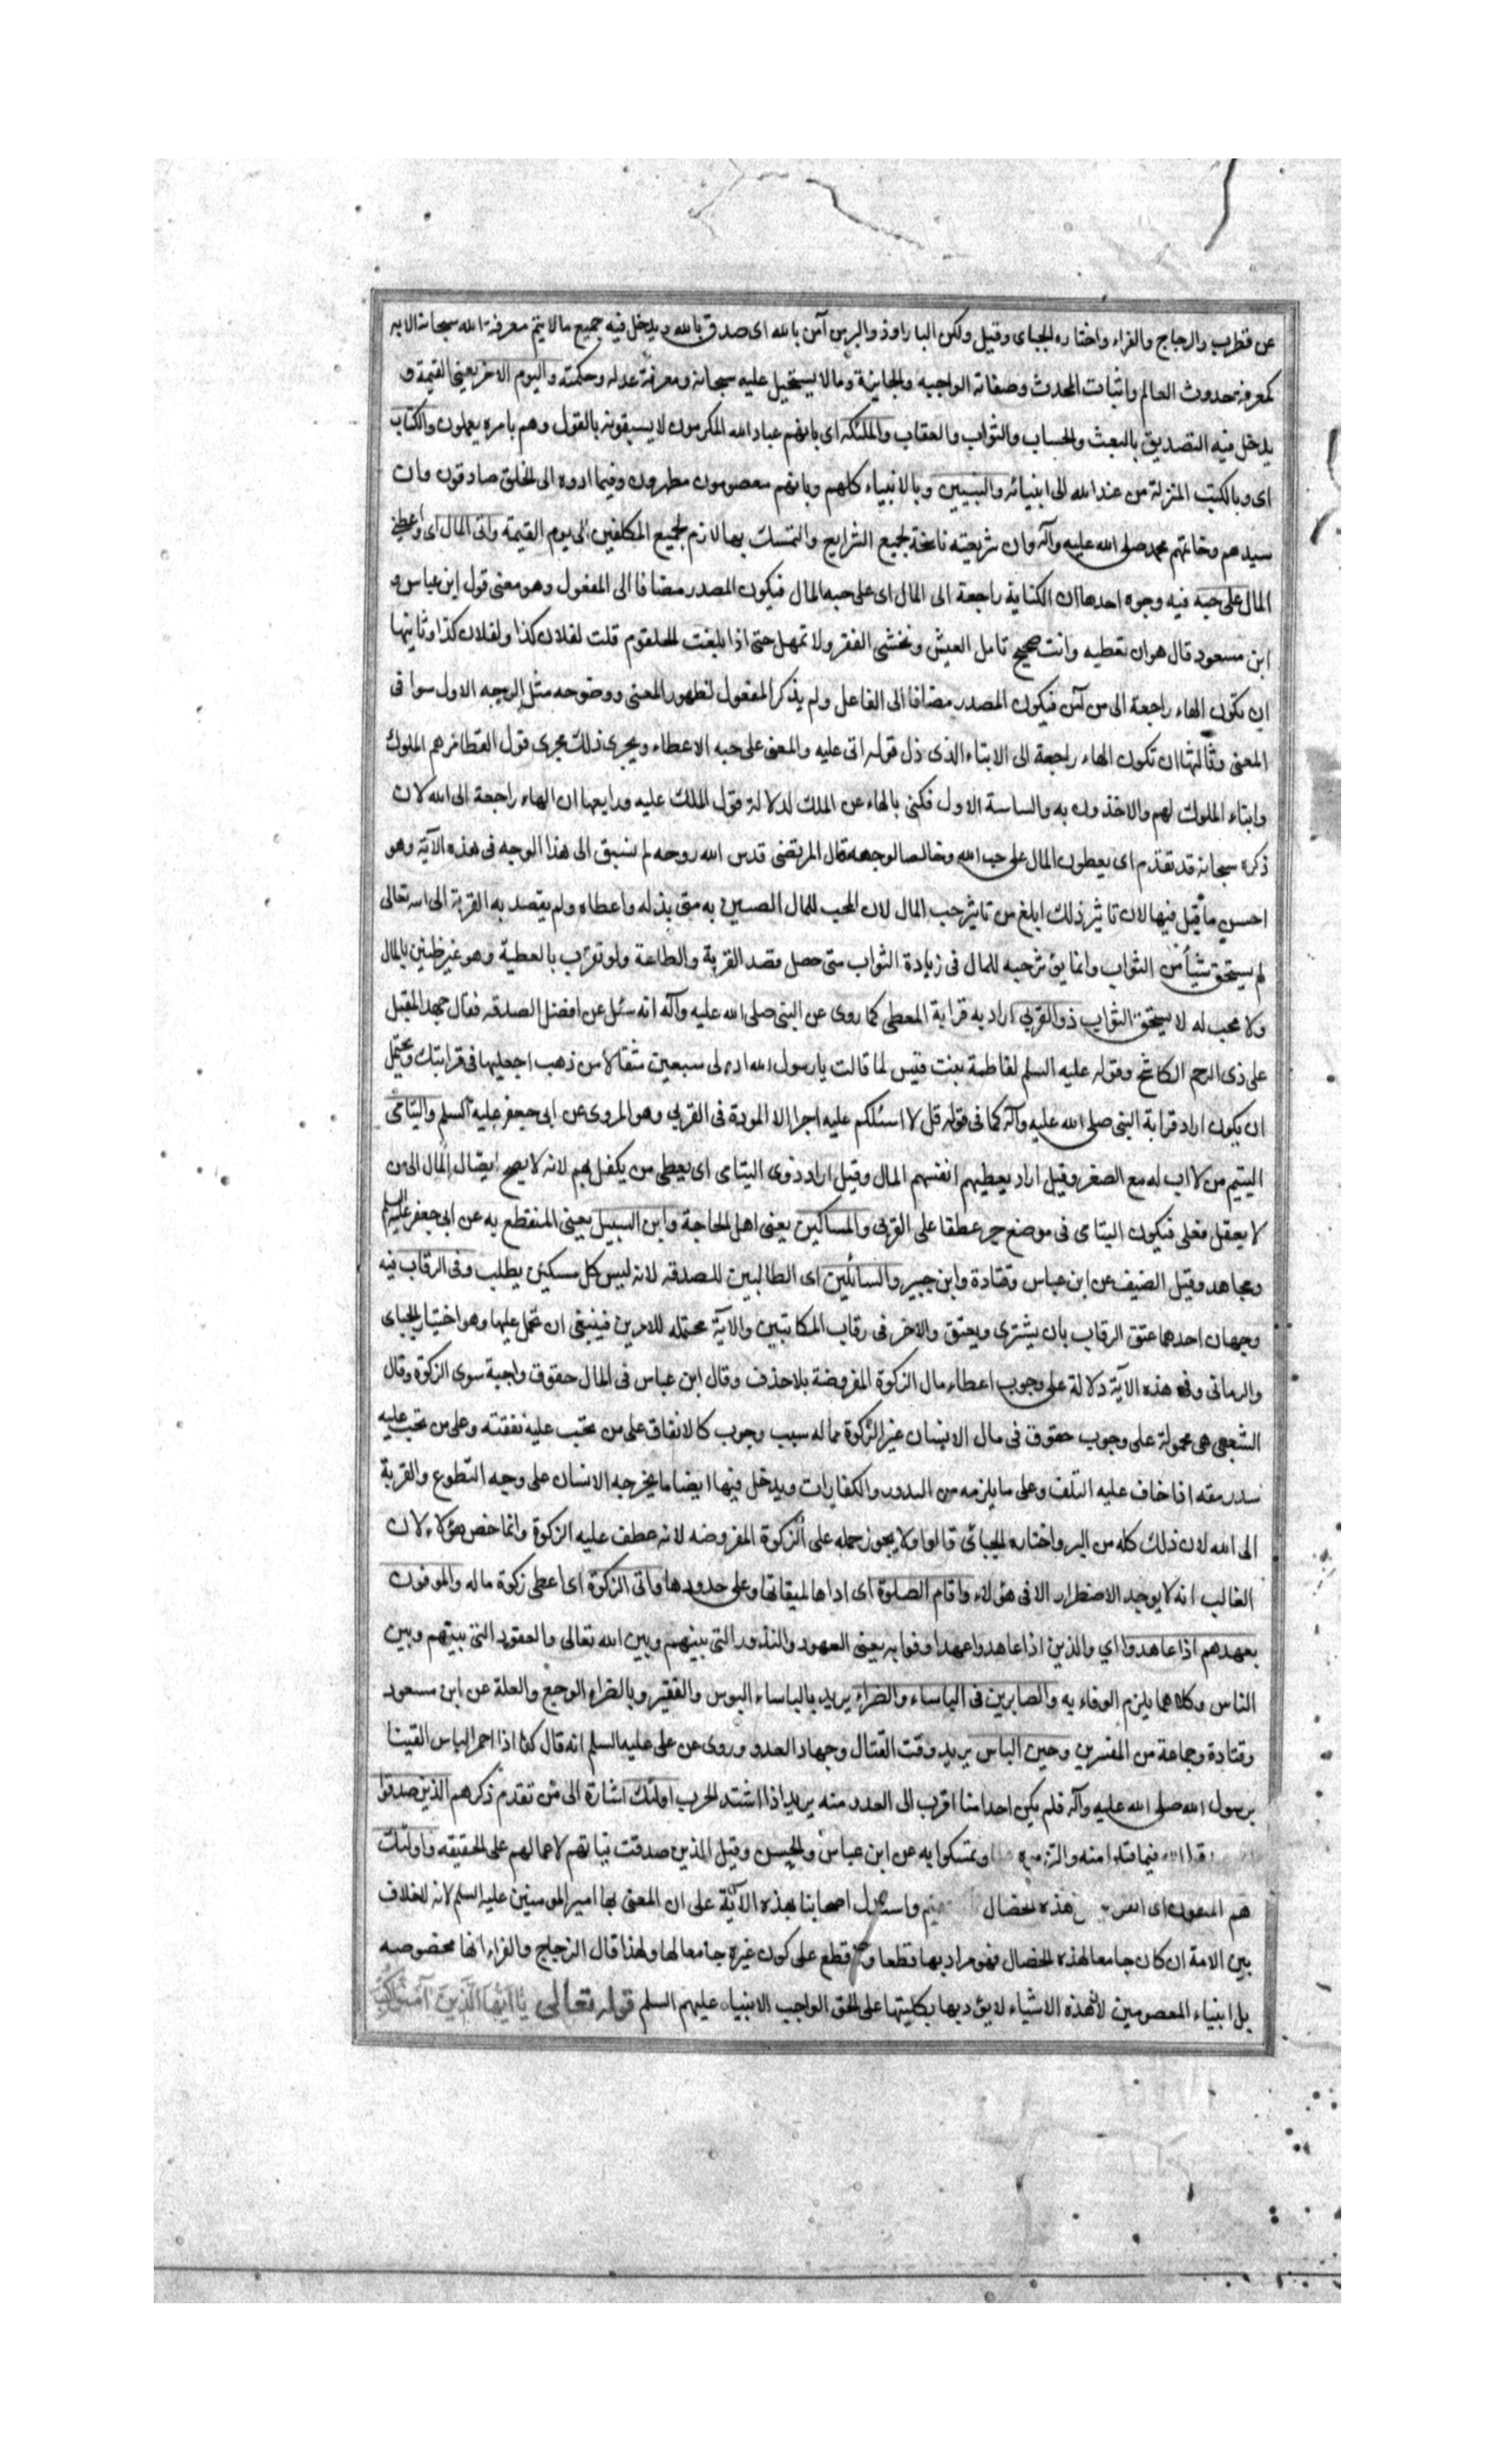 عن قطرب والزجاج والفراء واختاره الجبائى وقيل ولكن البار او ذو البر من آمن بالله اى صدق بالله ويدخل فيه جميع مالا يتم معرفة الله سبحانه الا به
كمعرفة حدوث العالم واثبات المحدث وصفاته الواجبه والجايزة وما لا يستحيل عليه سبحانه ومعرفة عدله وحكمته واليوم الاخر يعنى القيمة و
يدخل فيه التصديق بالبعث والحساب والثواب والعقاب والملئكه اى بانهم عباد الله المكرمون لا يسبقونه بالقول وهم بامره يعملون والكتاب
اى وبالكتب المنزلة من عند الله الى انبيائه والنبيين وبالانبياء كلهم وبانهم معصومون مطهرون وفيما ادوه الى الخلق صادقون وان
سيدهم وخاتمهم محمد صلى الله عليه وآله وان شريعته ناسخة لجميع الشرايع والتمسك بها لازم لجميع المكلفين الى يوم القيمة واتى المال اى واعطى
المال على حبه فيه وجوه احدها ان الكناية راجعة الى المال اى على حب المال فيكون المصدر مضافا الى المفعول وهو معنى قول ابن عباس و
ابن مسعود قال هو ان تعطيه وانت صحيح تامل العيش وتخشى الفقر ولا تمهل حتى اذا بلغت الحلقوم قلت لفلان كذا ولفلان كذا وثانيها
ان تكون الهاء راجعة الى من آمن فيكون المصدر مضافا الى الفاعل ولم يذكر المفعول لظهور المعنى ووضوحه مثل الوجه الاول سوا فى
المعنى وثالثها ان تكون الهاء راجعة الى الايتاء الذى دل قوله اتى عليه والمعنى على حبه الاعطاء ويجرى ذلك مجرى قول القطامى هم الملوك
وابناء الملوك لهم والاخذون به والساسة الاول فكنى بالهاء عن الملك لدلالة قول الملك عليه ورابعها ان الهاء راجعة الى الله لان
ذكره سبحانه قد تقدم اى يعطون المال على حب الله وخالصا لوجهه قال المرتضى قدس الله روحه لم نسبق الى هذا الوجه فى هذه الآية وهو
احسن ما قيل فيها لان تاثير ذلك ابلغ من تاثير حب المال لان المحب للمال الضنين به متى بذله واعطاه ولم يقصد به القربة الى الله تعالى
لم يستحق شيأ من الثواب وانما يؤثر حبه للمال فى زيادة الثواب متى حصل قصد القربة والطاعة ولو تقرب بالعطية وهو غير ظنين بالمال
ولا محب له لا يستحق الثواب ذو القربى اراد به قرابة المعطى كما روى عن النبى صلى الله عليه وآله انه سئل عن افضل الصدقه فقال جهد المقل
على ذى الرحم الكاشح وقوله عليه السلم لفاطمة بنت قيس لما قالت يا رسول الله ان لى سبعين مثقالا من ذهب اجعليها فى قرابتك ويحتمل
ان يكون اراد قرابة النبى صلى الله عليه وآله كما فى قوله قل لا اسئلكم عليه اجرا الا المودة فى القربى وهو المروى عن ابى جعفر عليه السلم واليتامى
اليتيم من لا اب له مع الصغر وقيل اراد يعطيهم انفسهم المال وقيل اراد ذوى اليتامى اى يعطى من يكفل بهم لانه لا يصح ايصال المال الى من
لا يعقل فعلى فيكون اليتامى فى موضع جر عطفا على القربى والمساكين يعنى اهل الحاجة وابن السبيل يعنى المنقطع به عن ابى جعفر عليه السلم
ومجاهد وقيل الضيف عن ابن عباس وقتادة وابن جبير والسائلين اى الطالبين للصدقه لانه ليس كل مسكين يطلب وفى الرقاب فيه
وجهان احدهما عتق الرقاب بان يشترى ويعتق والاخر فى رقاب المكاتبين والآية محتمله للامرين فينبغى ان تحمل عليها وهو اختيار الجبائى
والرمانى وفى هذه الآية دلالة على وجوب اعطاء مال الزكوة المفروضة بلا خذف وقال ابن عباس فى المال حقوق واجبة سوى الزكوة وقال
الشعبى هى محمولة على وجوب حقوق فى مال الانسان غير الزكوة مما له سبب وجوب كالانفاق على من تجب عليه نفقته وعلى من تجب عليه
سد رمقه اذا خاف عليه التلف وعلى ما يلزمه من النذور والكفارات ويدخل فيها ايضا ما يخرجه الانسان على وجه التطوع والقربة
الى الله لان ذلك كله من البر واختاره الجبائى قالوا ولا يجوز حمله على الزكوة المفروضه لانه عطف عليه الزكوة وانما خص هؤلاء لان
الغالب انه لا يوجد الاضطرار الا فى هؤلاء واقام الصلوة اى اداها لميقاتها وعلى حدودها واتى الزكوة اى اعطى زكوة ماله والموفون
بعهدهم اذا عاهدوا اي والذين اذا عاهدوا عهدا وفوا به يعنى العهود والنذور التى بينهم وبين الله تعالى والعقود التى بينهم وبين
الناس وكلاهما يلزم الوفاء به والصابرين فى الباساء والضراء يريد بالباساء البوس والفقر وبالضراء الوجع والعلة عن ابن مسعود
وقتادة وجماعة من المفسرين وحين الباس يريد وقت القتال وجهاد العدو وروى عن على عليه السلم انه قال كنا اذا احمر الباس اتقينا
برسول الله صلى الله عليه وآله فلم يكن احد منا اقرب الى العدو منه يريد اذا اشتد الحرب اولئك اشارة الى من تقدم ذكرهم الذين صدقوا
الله فيما قبلوا منه والتزموه وتمسكوا به عن ابن عباس والحسن وقيل الذين صدقت نياتهم لاعمالهم على الحقيقه واولئك
هم المتقون اى هذه الخصال واستدل اصحابنا بهذه الآية على ان المعنى بها امير المومنين عليه السلم لانه لا خلاف
بين الامة ان كان جامعا لهذه الخصال فهو مراد بها قطعا ولا قطع على كون غيره جامعا لها ولهذا قال الزجاج والفراء انها مخصوصه
بل انبياء المعصومين لان هذه الاشياء لا يؤديها بكليتها على الحق الواجب الا الانبياء عليهم السلم قوله تعالى يا ايها الذين آمنوا كتب